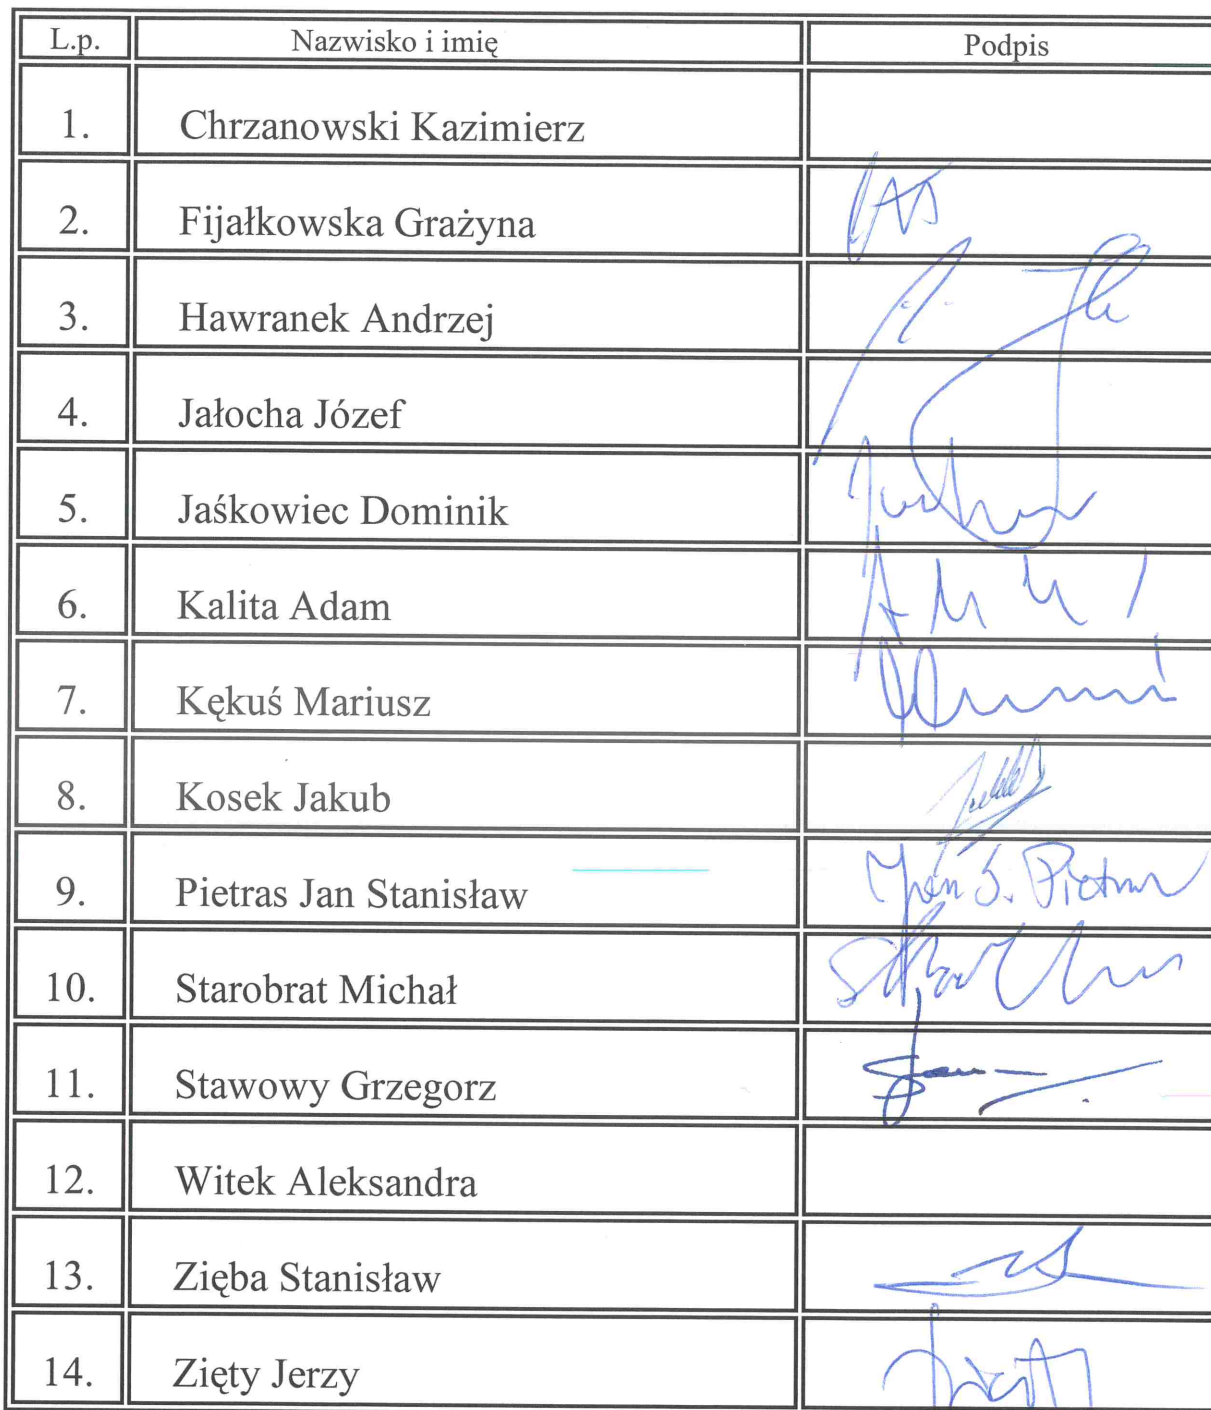 L.p. Nazwisko i imię Podpis
1. Chrzanowski Kazimierz
2. Fijałkowska Grażyna
3. Hawranek Andrzej
4. Jałocha Józef
5. Jaśkowiec Dominik
6. Kalita Adam
7. Kękuś Mariusz
8. Kosek Jakub
9. Pietras Jan Stanisław Jan S. Pietras
10. Starobrat Michał
11. Stawowy Grzegorz
12. Witek Aleksandra
13. Zięba Stanisław
14. Zięty Jerzy